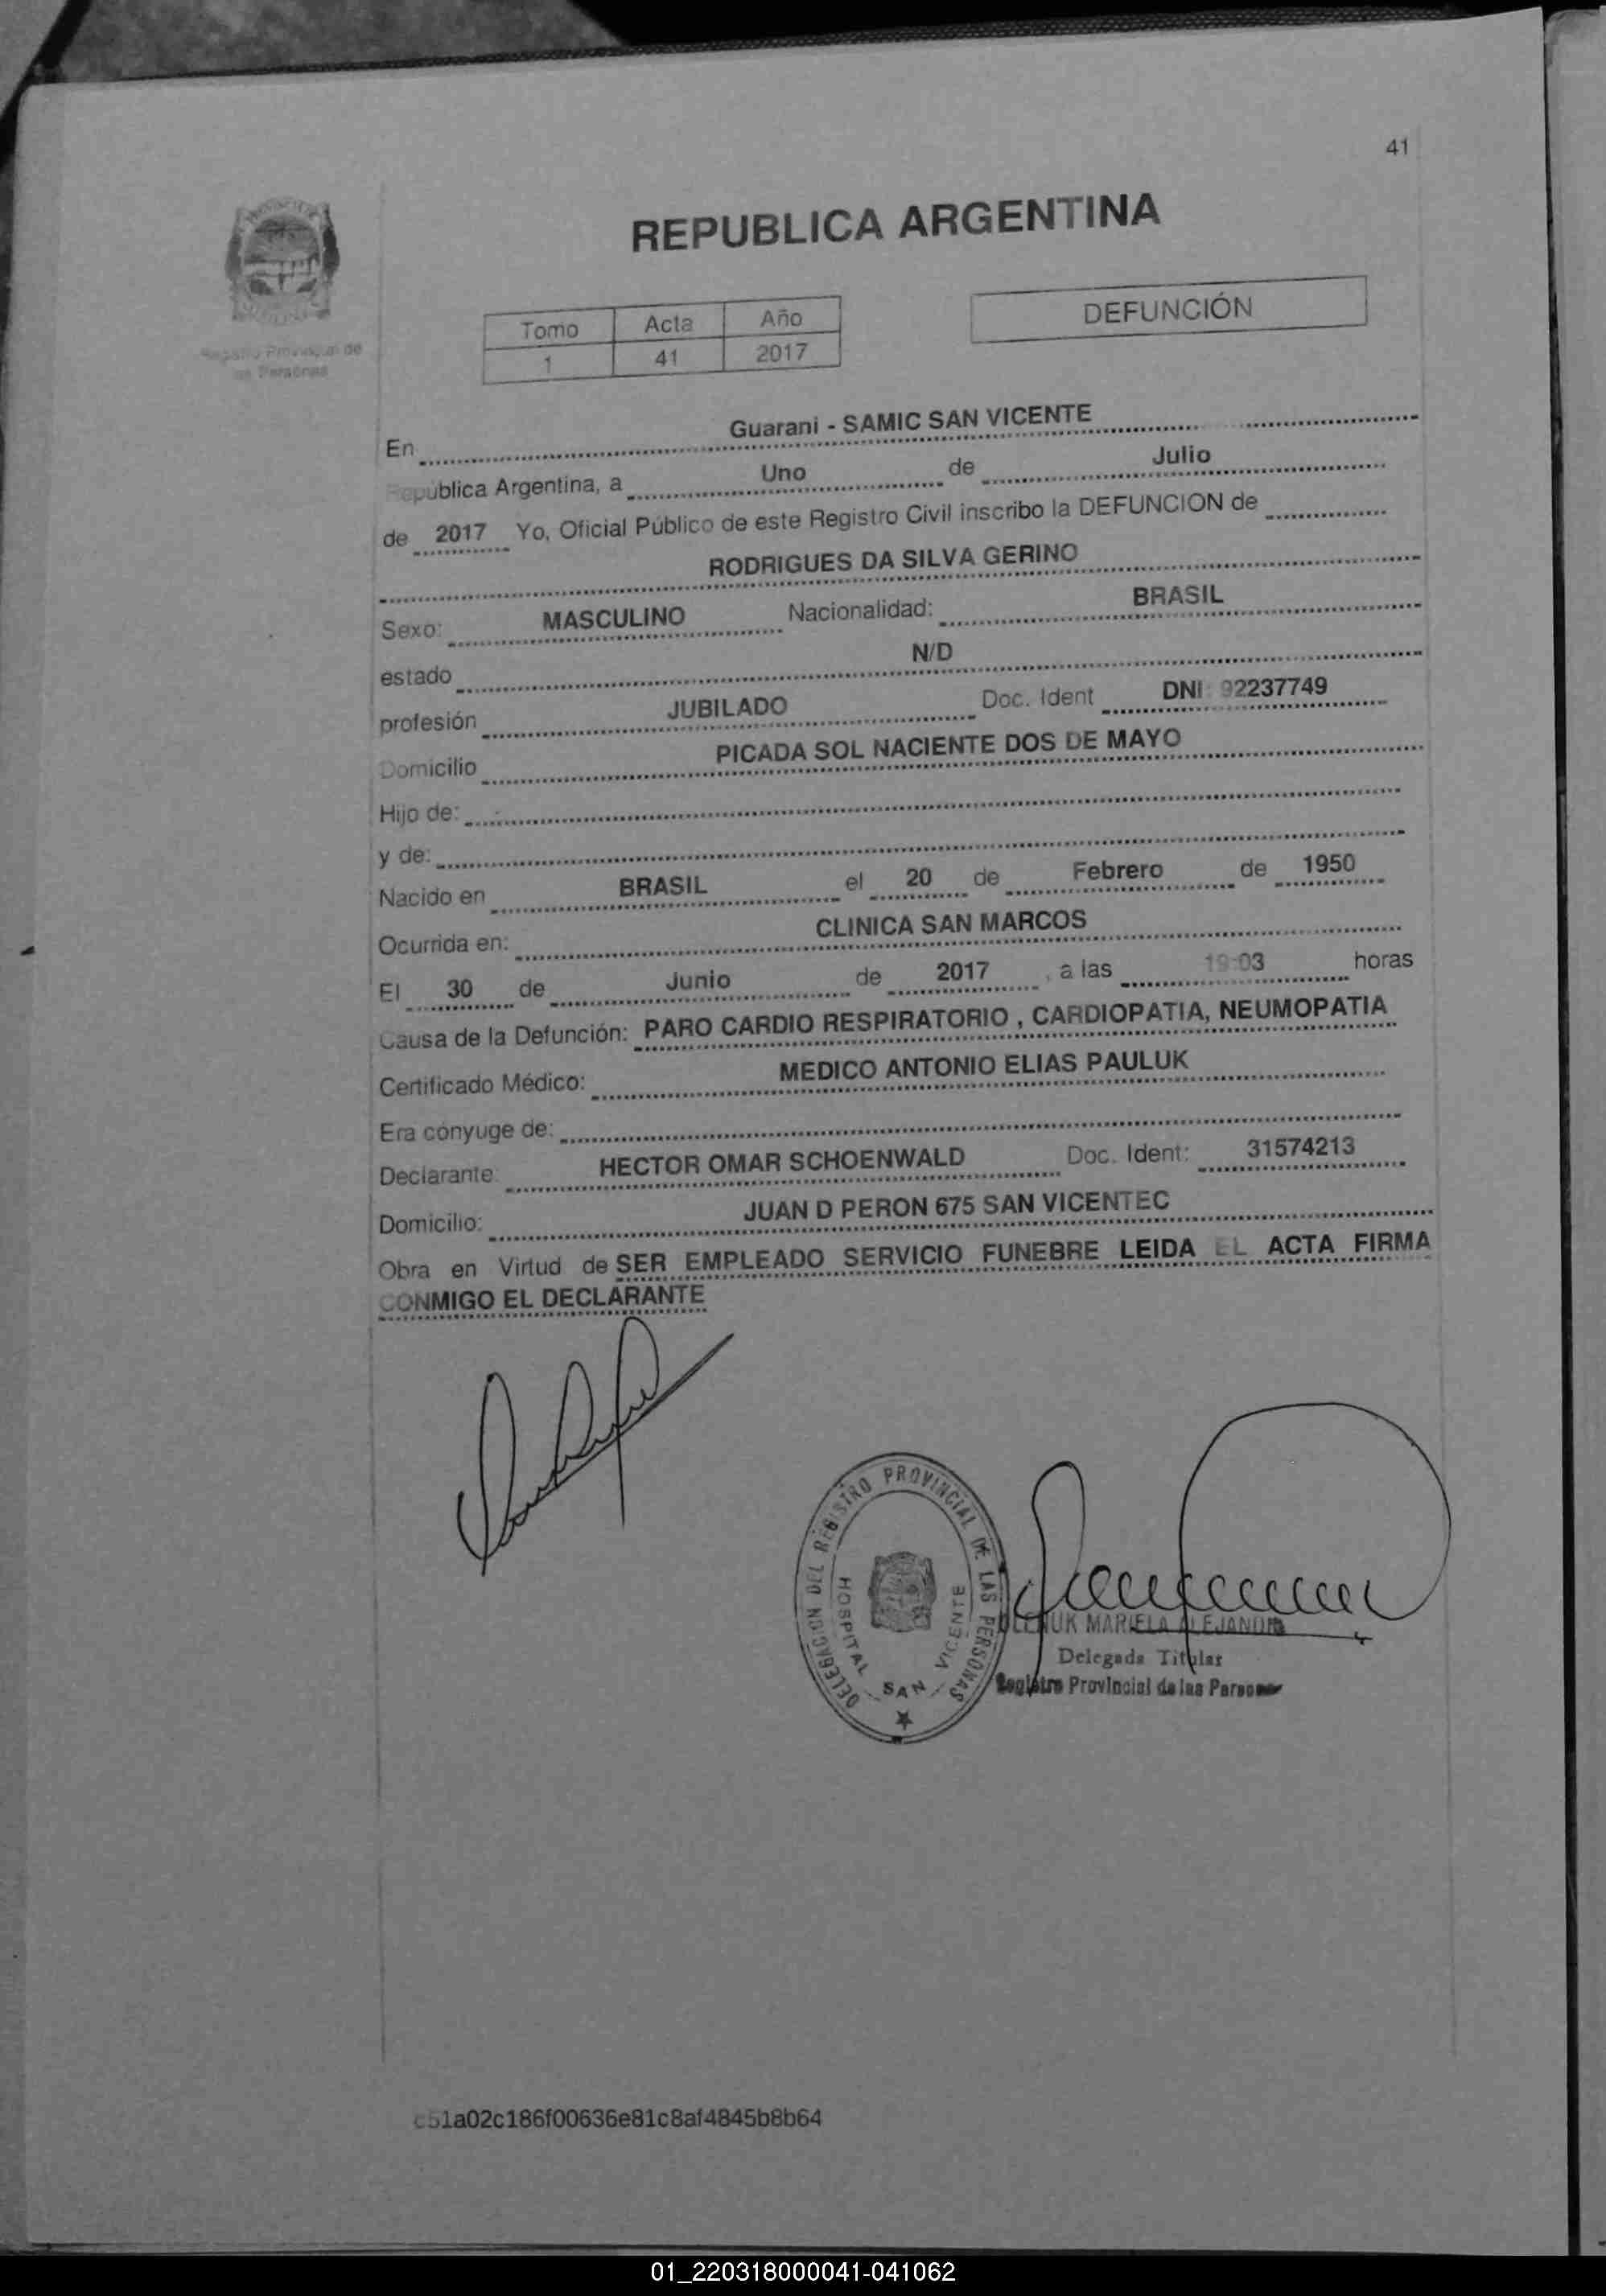 41
REPUBLICA ARGENTINA
Registro Provincial de
las Personas
Tomo Acta Año
1 41 2017
DEFUNCIÓN
En Guarani - SAMIC SAN VICENTE
República Argentina, a Uno de Julio
de 2017 Yo, Oficial Público de este Registro Civil inscribo la DEFUNCION de
RODRIGUES DA SILVA GERINO
Sexo: MASCULINO Nacionalidad: BRASIL
estado N/D
profesión JUBILADO Doc. Ident DNI: 92237749
Domicilio PICADA SOL NACIENTE DOS DE MAYO
Hijo de:
y de:
Nacido en BRASIL el 20 de Febrero de 1950
Ocurrida en: CLINICA SAN MARCOS
El 30 de Junio de 2017, a las 19:03 horas
Causa de la Defunción: PARO CARDIO RESPIRATORIO , CARDIOPATIA, NEUMOPATIA
Certificado Médico: MEDICO ANTONIO ELIAS PAULUK
Era cónyuge de:
Declarante: HECTOR OMAR SCHOENWALD Doc. Ident: 31574213
Domicilio: JUAN D PERON 675 SAN VICENTEC
Obra en Virtud de SER EMPLEADO SERVICIO FUNEBRE LEIDA EL ACTA FIRMA
CONMIGO EL DECLARANTE
DELEGACION DEL REGISTRO PROVINCIAL DE LAS PERSONAS
HOSPITAL SAN VICENTE
MARIELA ALEJANDRA
Delegada Titular
Registro Provincial de las Personas
c51a02c186f00636e81c8af4845b8b64
01_220318000041-041062